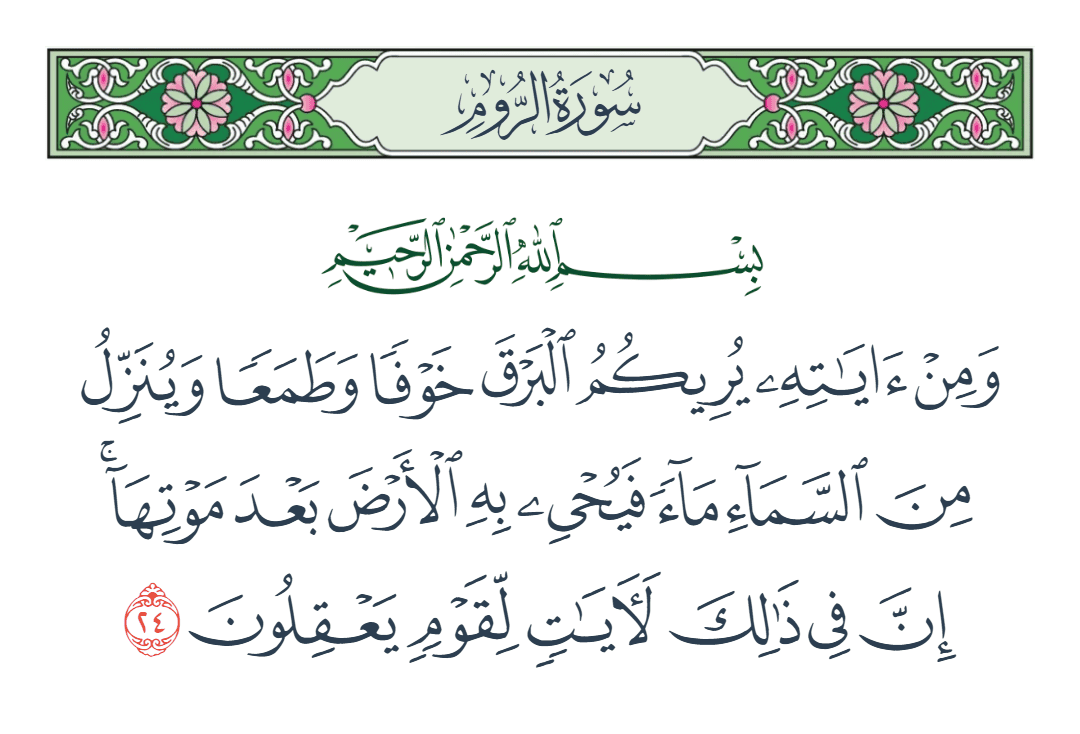 سُورَةُ الرُّومِ
بِسْمِ ٱللَّهِ ٱلرَّحْمَٰنِ ٱلرَّحِيمِ
وَمِنْ ءَايَٰتِهِۦ يُرِيكُمُ ٱلْبَرْقَ خَوْفًا وَطَمَعًا وَيُنَزِّلُ
مِنَ ٱلسَّمَآءِ مَآءً فَيُحْىِۦ بِهِ ٱلْأَرْضَ بَعْدَ مَوْتِهَآ ۚ
إِنَّ فِى ذَٰلِكَ لَـَٔايَٰتٍ لِّقَوْمٍ يَعْقِلُونَ ٢٤